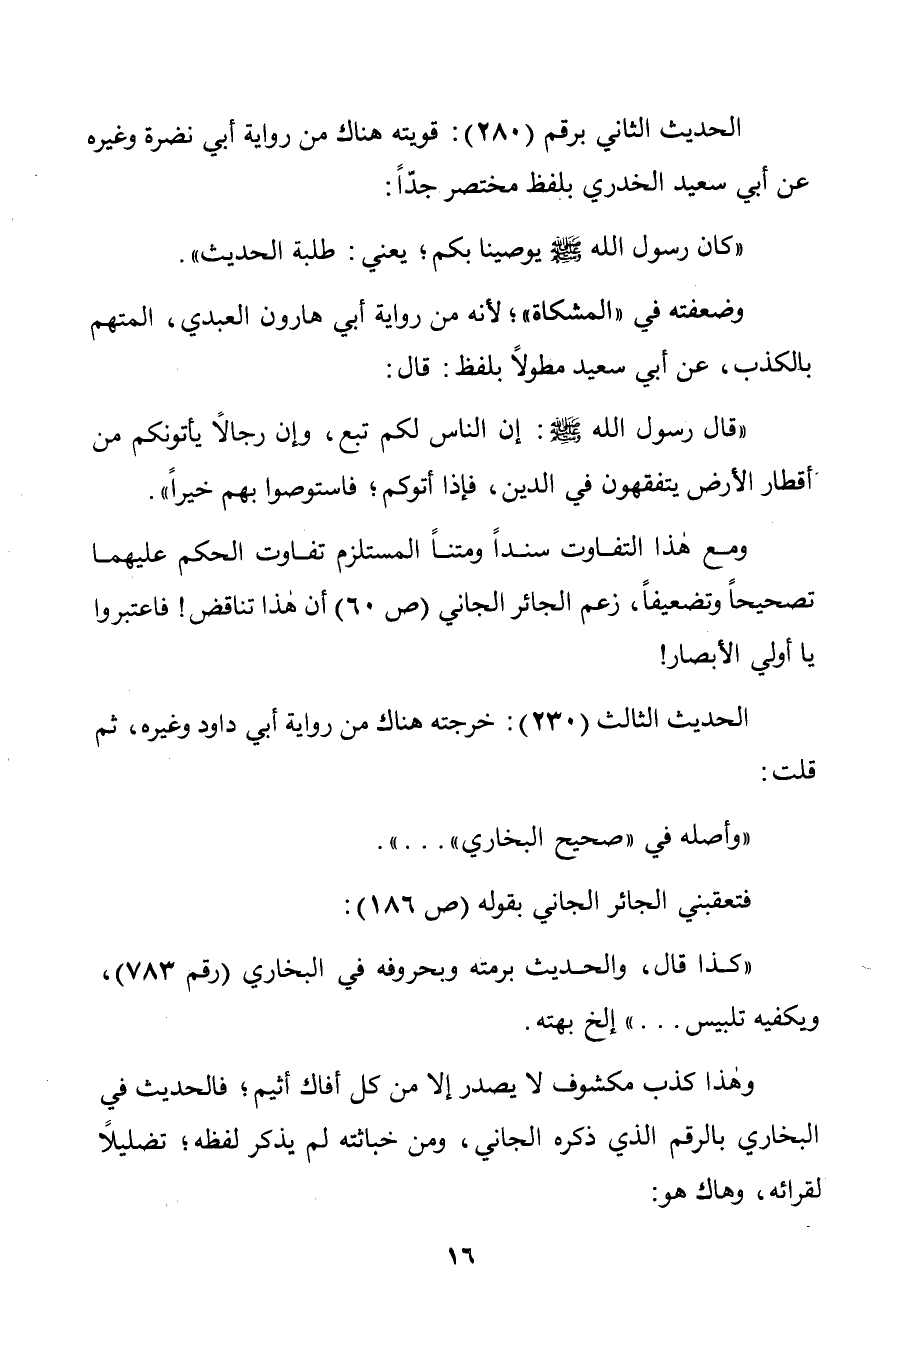 الحديث الثاني برقم (٢٨٠): قويته هناك من رواية أبي نضرة وغيره
عن أبي سعيد الخدري بلفظ مختصر جدّاً:
«كان رسول الله ﷺ يوصينا بكم؛ يعني: طلبة الحديث».
وضعفته في «المشكاة»؛ لأنه من رواية أبي هارون العبدي، المتهم
بالكذب، عن أبي سعيد مطولاً بلفظ: قال:
«قال رسول الله ﷺ: إن الناس لكم تبع، وإن رجالاً يأتونكم من
أقطار الأرض يتفقهون في الدين، فإذا أتوكم؛ فاستوصوا بهم خيراً».
ومع هٰذا التفاوت سنداً ومتناً المستلزم تفاوت الحكم عليهما
تصحيحاً وتضعيفاً، زعم الجائر الجاني (ص ٦٠) أن هٰذا تناقض! فاعتبروا
يا أولي الأبصار!
الحديث الثالث (٢٣٠): خرجته هناك من رواية أبي داود وغيره، ثم
قلت:
«وأصله في «صحيح البخاري». . . ».
فتعقبني الجائر الجاني بقوله (ص ١٨٦):
«كذا قال، والحديث برمته وبحروفه في البخاري (رقم ٧٨٣)،
ويكفيه تلبيس. . . » إلخ بهته.
وهٰذا كذب مكشوف لا يصدر إلا من كل أفاك أثيم؛ فالحديث في
البخاري بالرقم الذي ذكره الجاني، ومن خباثته لم يذكر لفظه؛ تضليلاً
لقرائه، وهاك هو:
١٦